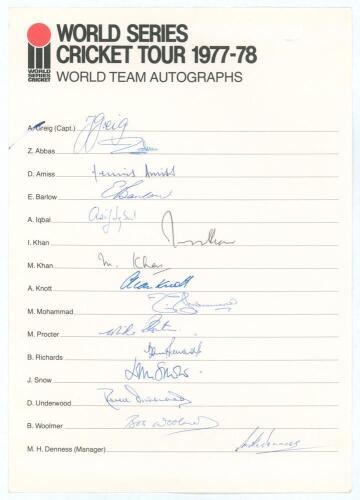 WORLD SERIES
CRICKET TOUR 1977-78
WORLD TEAM AUTOGRAPHS
WORLD
SERIES
CRICKET
A. Greig (Capt.) Greig
Z. Abbas
D. Amiss Dennis Amiss
E. Barlow E Barlow
A. Iqbal Asif Iqbal
I. Khan
M. Khan M. Khan
A. Knott Alan Knott
M. Mohammad
M. Procter Mike Procter
B. Richards
J. Snow John Snow
D. Underwood Derek Underwood
B. Woolmer Bob Woolmer
M. H. Denness (Manager)